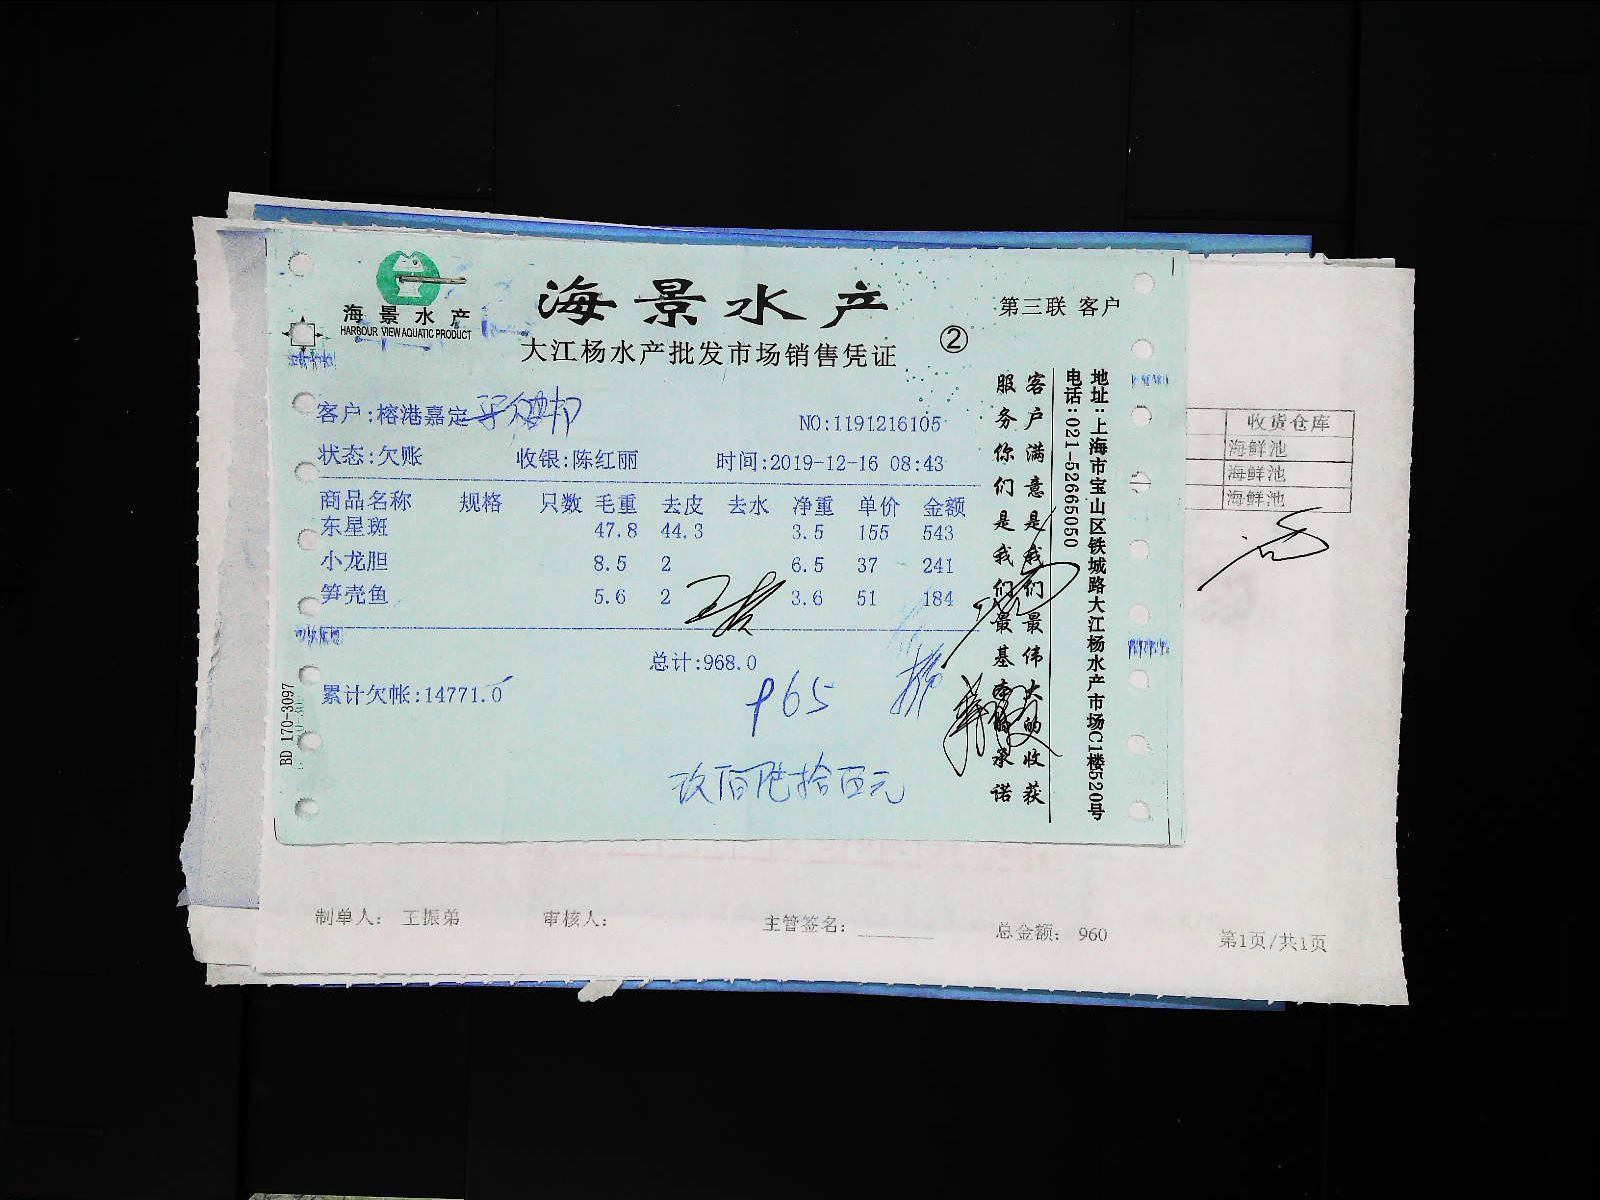 海景水产
HARBOUR VIEW AQUATIC PRODUCT
海景水产
大江杨水产批发市场销售凭证
②
第三联 客户
客户:榕港嘉定
NO:1191216105
状态:欠账 收银:陈红丽 时间:2019-12-16 08:43
商品名称 规格 只数 毛重 去皮 去水 净重 单价 金额
东星斑 47.8 44.3 3.5 155 543
小龙胆 8.5 2 6.5 37 241
笋壳鱼 5.6 2 3.6 51 184
总计:968.0
累计欠帐:14771.0
965
玖佰陆拾伍元
BD 170-3097
客户满意是我们最伟大的收获
服务你们是我们最基本的承诺
地址:上海市宝山区铁城路大江杨水产市场C1楼520号
电话:021-52665050
收货仓库
海鲜池
海鲜池
海鲜池
制单人: 王振弟 审核人: 主管签名: 总金额: 960 第1页/共1页